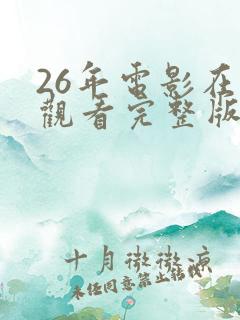 26年電影在
觀看完整版
十月微微涼
未经同意禁止转载